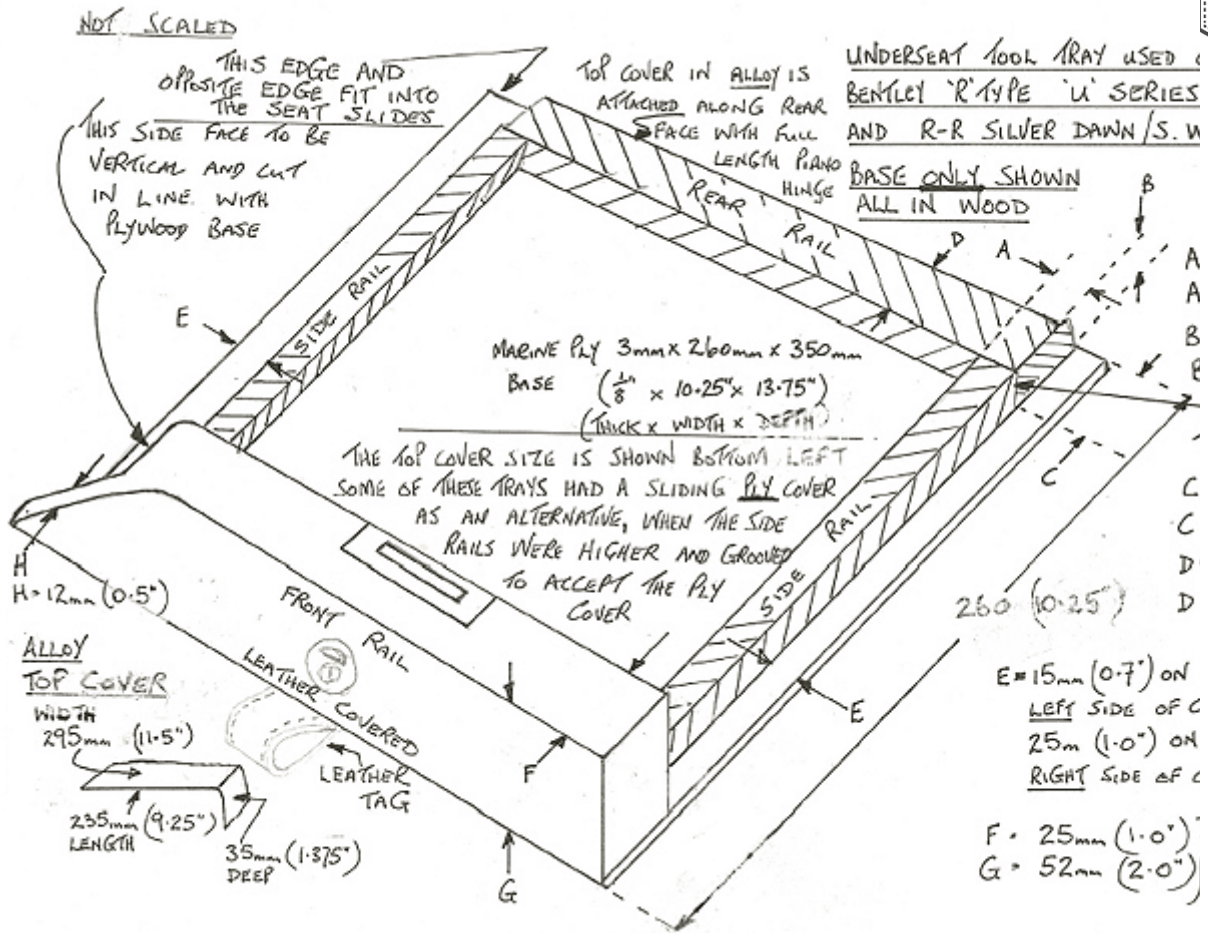 NOT SCALED
THIS EDGE AND
OPPOSITE EDGE FIT INTO
THE SEAT SLIDES
THIS SIDE FACE TO BE
VERTICAL AND CUT
IN LINE WITH
PLYWOOD BASE
TOP COVER IN ALLOY IS
ATTACHED ALONG REAR
FACE WITH FULL
LENGTH PIANO
HINGE
UNDERSEAT TOOL TRAY USED
BENTLEY 'R' TYPE 'U' SERIES
AND R-R SILVER DAWN/S.W
BASE ONLY SHOWN
ALL IN WOOD
B
A
D
REAR
RAIL
A
A
B
B
E
SIDE
RAIL
MARINE PLY 3mm x 260mm x 350mm
BASE (1/8" x 10.25" x 13.75")
(THICK x WIDTH x DEPTH)
THE TOP COVER SIZE IS SHOWN BOTTOM LEFT
SOME OF THESE TRAYS HAD A SLIDING PLY COVER
AS AN ALTERNATIVE, WHEN THE SIDE
RAILS WERE HIGHER AND GROOVED
TO ACCEPT THE PLY
COVER
C
C
C
D
D
SIDE
RAIL
260 (10.25")
H
H=12mm (0.5")
FRONT
RAIL
LEATHER COVERED
LEATHER
TAG
ALLOY
TOP COVER
WIDTH
295mm (11.5")
235mm (9.25")
LENGTH
35mm (1.375")
DEEP
F
G
E
E=15mm (0.7") ON
LEFT SIDE OF
25m (1.0") ON
RIGHT SIDE OF
F = 25mm (1.0")
G = 52mm (2.0")